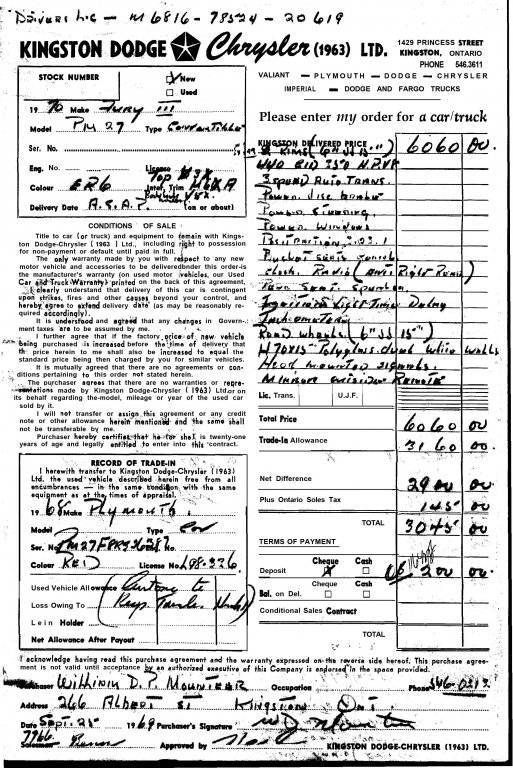 Drivers Lic - M6816 - 78524 - 20619
KINGSTON DODGE Chrysler (1963) LTD.
1429 PRINCESS STREET
KINGSTON, ONTARIO
PHONE 546.3611
VALIANT — PLYMOUTH — DODGE — CHRYSLER
IMPERIAL — DODGE AND FARGO TRUCKS
STOCK NUMBER
New
Used
1970 Make Fury III
Model PM 27 Type Convertible
Ser. No.
Eng. No. License
Top
Colour ER6 Inter. Trim
Delivery Date A.S.A.P. (on or about)
Please enter my order for a car/truck
KINGSTON DELIVERED PRICE 6060 00
3 Speed Auto Trans.
Power Disc Brakes
Power Steering
Power Windows
Radio
Tinted
Road wheels (6" JJ 15")
H70X15 Polyglass white walls
Hood mounted signals
Mirror Remote
Lic. Trans. U.J.F.
Total Price 6060 00
Trade-In Allowance 3160 00
Net Difference 2900 00
Plus Ontario Sales Tax 145 00
TOTAL 3045 00
TERMS OF PAYMENT
Cheque Cash
Deposit 200 00
Cheque Cash
Bal. on Del.
Conditional Sales Contract
TOTAL
CONDITIONS OF SALE
Title to car (or truck) and equipment to remain with Kings-
ton Dodge-Chrysler (1963) Ltd., including right to possession
for non-payment or default until paid in full.
The only warranty made by you with respect to any new
motor vehicle and accessories to be delivered under this order is
the manufacturer's warranty (on used motor vehicles, our Used
Car and Truck Warranty) printed on the back of this agreement.
I clearly understand that delivery of this car is contingent
upon strikes, fires and other causes beyond your control, and
hereby agree to extend delivery date (as may be reasonably re-
quired accordingly).
It is understood and agreed that any changes in Govern-
ment taxes are to be assumed by me.
I further agree that if the factory price of new vehicle
being purchased is increased before the time of delivery that
the price herein to me shall also be increased to equal the
standard price being then charged by you for similar vehicles.
It is mutually agreed that there are no agreements or con-
ditions pertaining to this order not stated herein.
The purchaser agrees that there are no warranties or repre-
sentations made by Kingston Dodge-Chrysler (1963) Ltd. or on
its behalf regarding the model, mileage or year of the used car
sold by it.
I will not transfer or assign this agreement or any credit
note or other allowance herein mentioned and the same shall
not be transferable by me.
Purchaser hereby certifies that he (or she) is twenty-one
years of age and legally entitled to enter into this contract.
RECORD OF TRADE-IN
I herewith transfer to Kingston Dodge-Chrysler (1963)
Ltd. the used vehicle described herein free from all
encumbrances — in the same condition, with the same
equipment as at the times of appraisal.
1968 Make Plymouth
Model Type Con
Ser. No.
Colour RED License No. L98-226
Used Vehicle Allowance
Loss Owing To
Lein Holder
Net Allowance After Payout
I acknowledge having read this purchase agreement and the warranty expressed on the reverse side hereof. This purchase agree-
ment is not valid until acceptance by an authorized executive of this Company is endorsed in the space provided.
Purchaser William D.P. Mounteer Occupation Phone 546-0313
Address 266 Albert St Kingston Ont.
Date Sept. 25 1969 Purchaser's Signature
7766
Salesman Approved by KINGSTON DODGE-CHRYSLER (1963) LTD.